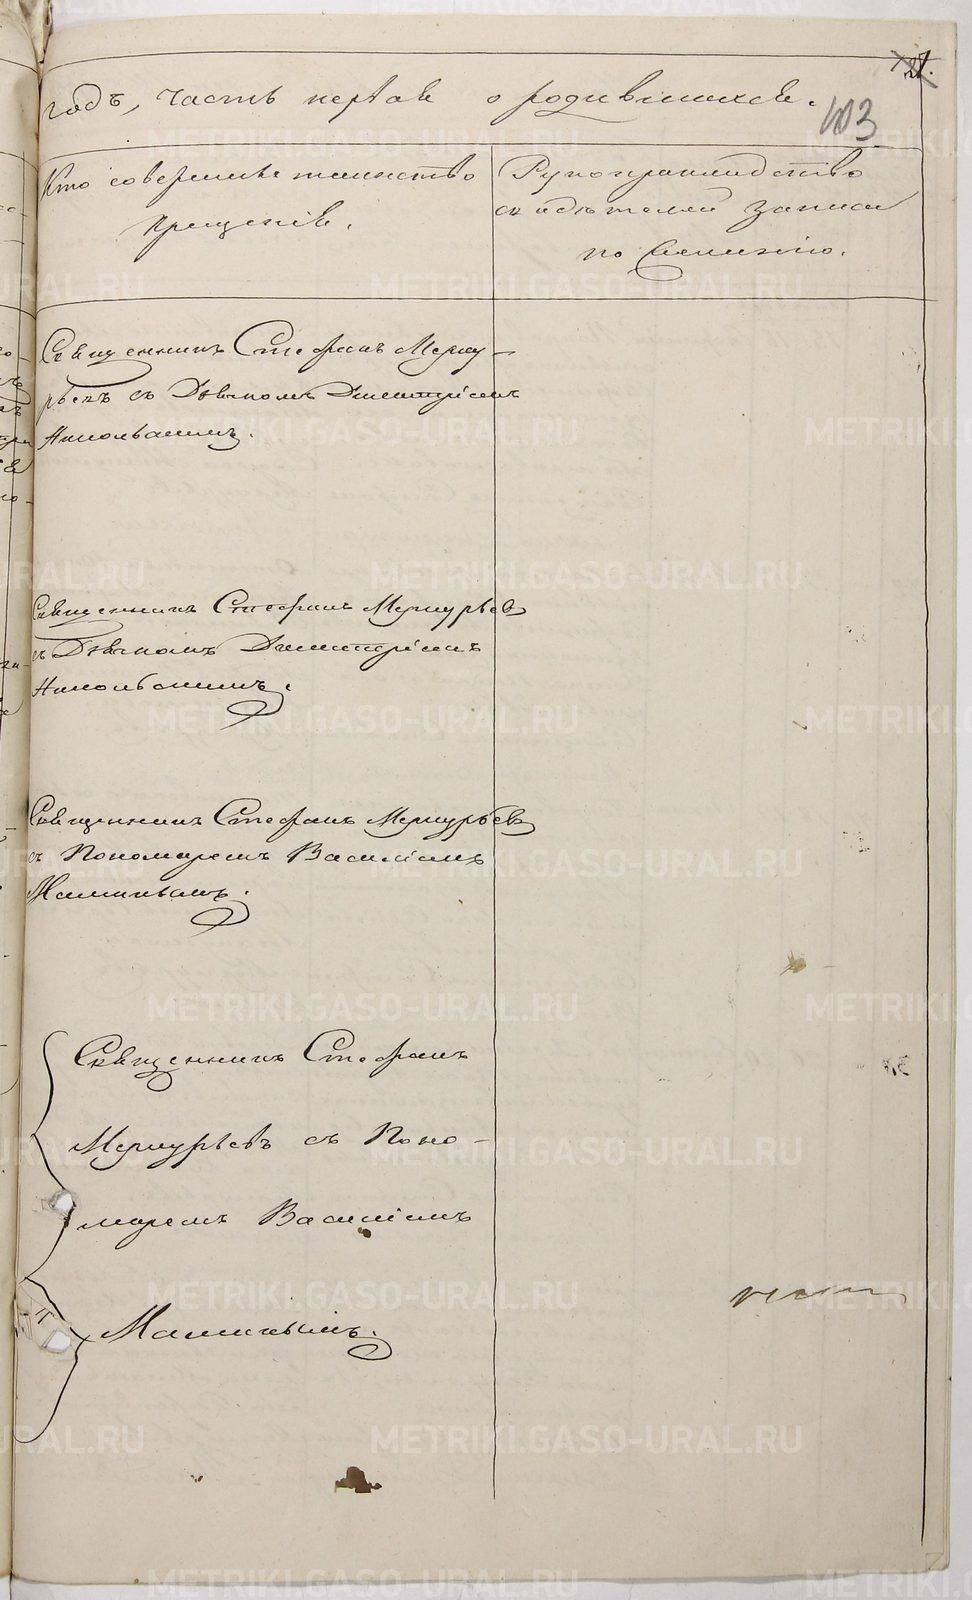 27.
годъ, часть первая о родившихся.
103
Кто совершалъ таинство
крещенія.
Рукоприкладство
свидѣтелей записи
по желанію.
Священникъ Стефанъ Мерку-
рьевъ съ Дьячкомъ Димитріемъ
Никольскимъ.
Священникъ Стефанъ Меркурьевъ
съ Дьячкомъ Димитріемъ
Никольскимъ.
Священникъ Стефанъ Меркурьевъ
съ Пономаремъ Василіемъ
Маминымъ.
Священникъ Стефанъ
Меркурьевъ съ Поно-
маремъ Василіемъ
Маминымъ.
METRIKI.GASO-URAL.RU